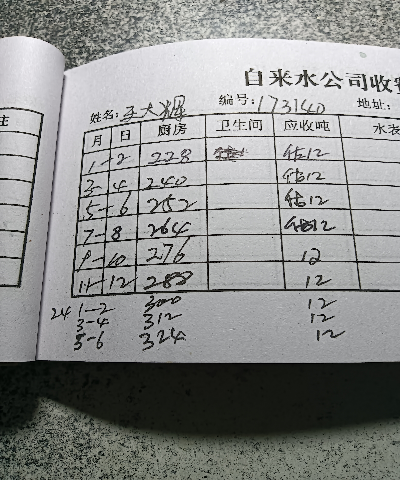 自来水公司收
姓名: 王大 编号: 173140 地址:
月 日 厨房 卫生间 应收吨 水表
1-2 228 估12
3-4 240 估12
5-6 252 估12
7-8 264 估12
9-10 276 12
11-12 288 12
24 1-2 300 12
3-4 312 12
5-6 324 12